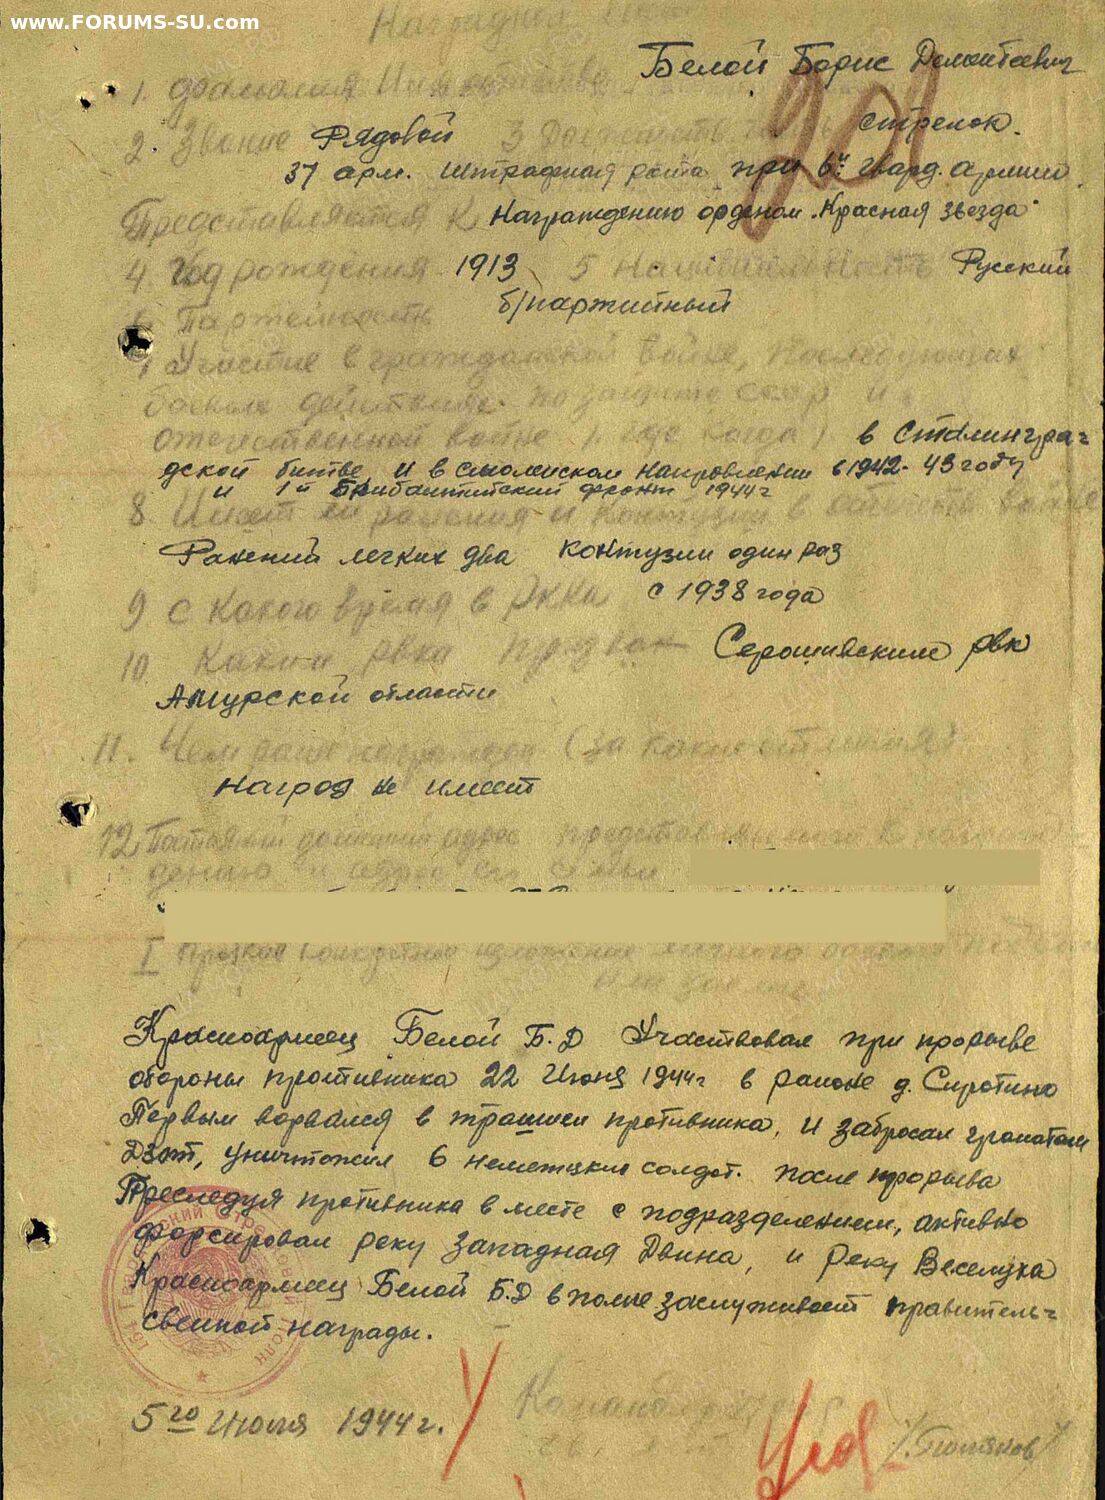 www.FORUMS-SU.com
Наградной
Белой Борис Дементьевич
1. Фамилия Имя
2. Звание Рядовой 3 Должность стрелок.
37 арм. штрафная рота при 6й гвард. армии
Представляется к Награждению орденом "Красная звезда"
4 Год рождения 1913 5 Национальность Русский
6 Партейность б/партийный
7 Участие в гражданской войне, последующих
боевых действиях по защите СССР и
отечественной войне (где когда) в Сталингра-
дской битве и в Смоленском направлении в 1942-43 году
и 1й Прибалтийский фронт 1944г
8 Имеет ли ранения и контузии в отечеств войне
Ранений легких два контузии один раз
9 С какого время в РККА с 1938 года
10. Каким РВКа призван Серошивским рвк
Амурской области
11. Чем ранее награжден (за какие отличия)
Наград не имеет
12 Постояный домашний адрес представляемого к награж
дению и адрес его семьи
I Краткое конкретное изложение личного боевого
или заслуг
Красноармеец Белой Б.Д Участвовал при прорыве
обороны противника 22 Июня 1944г в районе д. Сиротино
Первым ворвался в траншеи противника, и забросал гранатами
Дзот, уничтожил 6 немецких солдат. после прорыва
Преследуя противника в месте с подразделением, активно
форсировал реку западная Двина, и реку Веселуха
Красноармеец Белой Б.Д вполне заслуживает правитель-
свенной награды.
5го Июля 1944г.
Командир